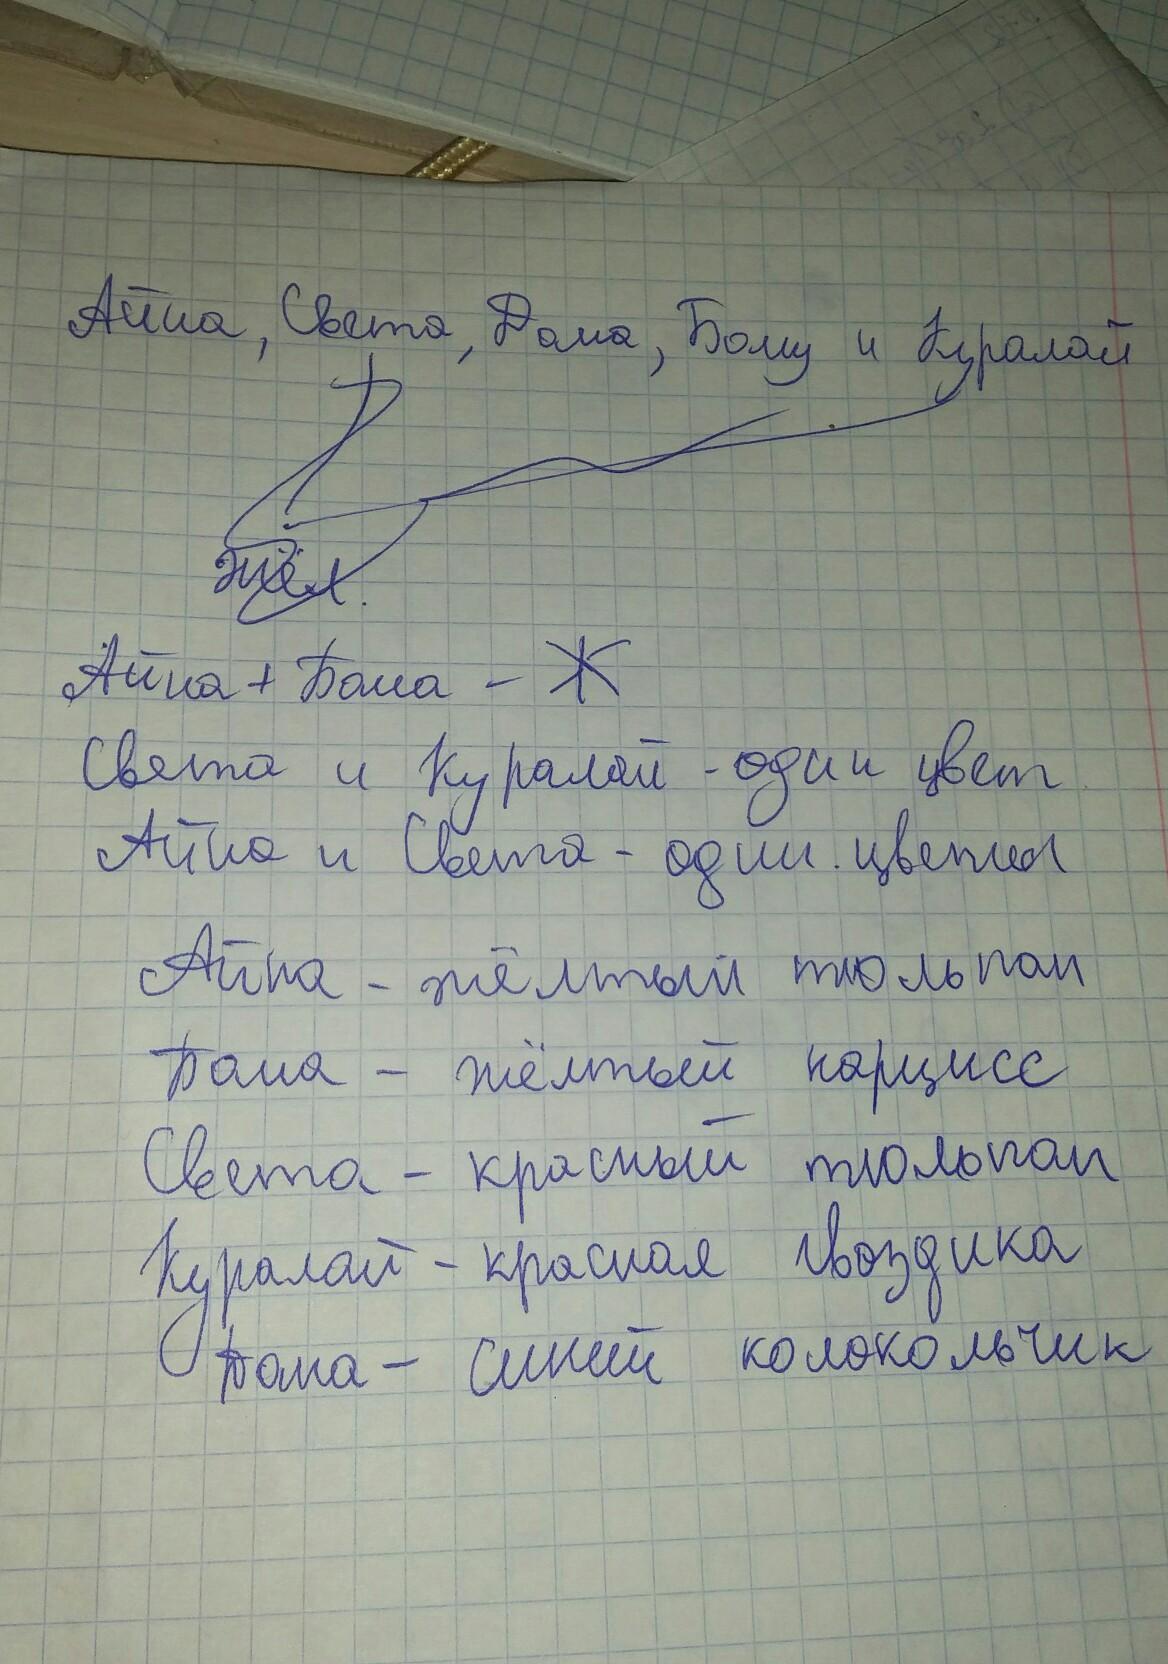 Айна, Света, Дана, Бану и Куралай
жёл.
Айна + Бана - Ж
Света и Куралай - один цвет
Айна и Света - один. цветы
Айна - жёлтый тюльпан
Бана - жёлтый нарцисс
Света - красный тюльпан
Куралай - красная гвоздика
Дана - синий колокольчик